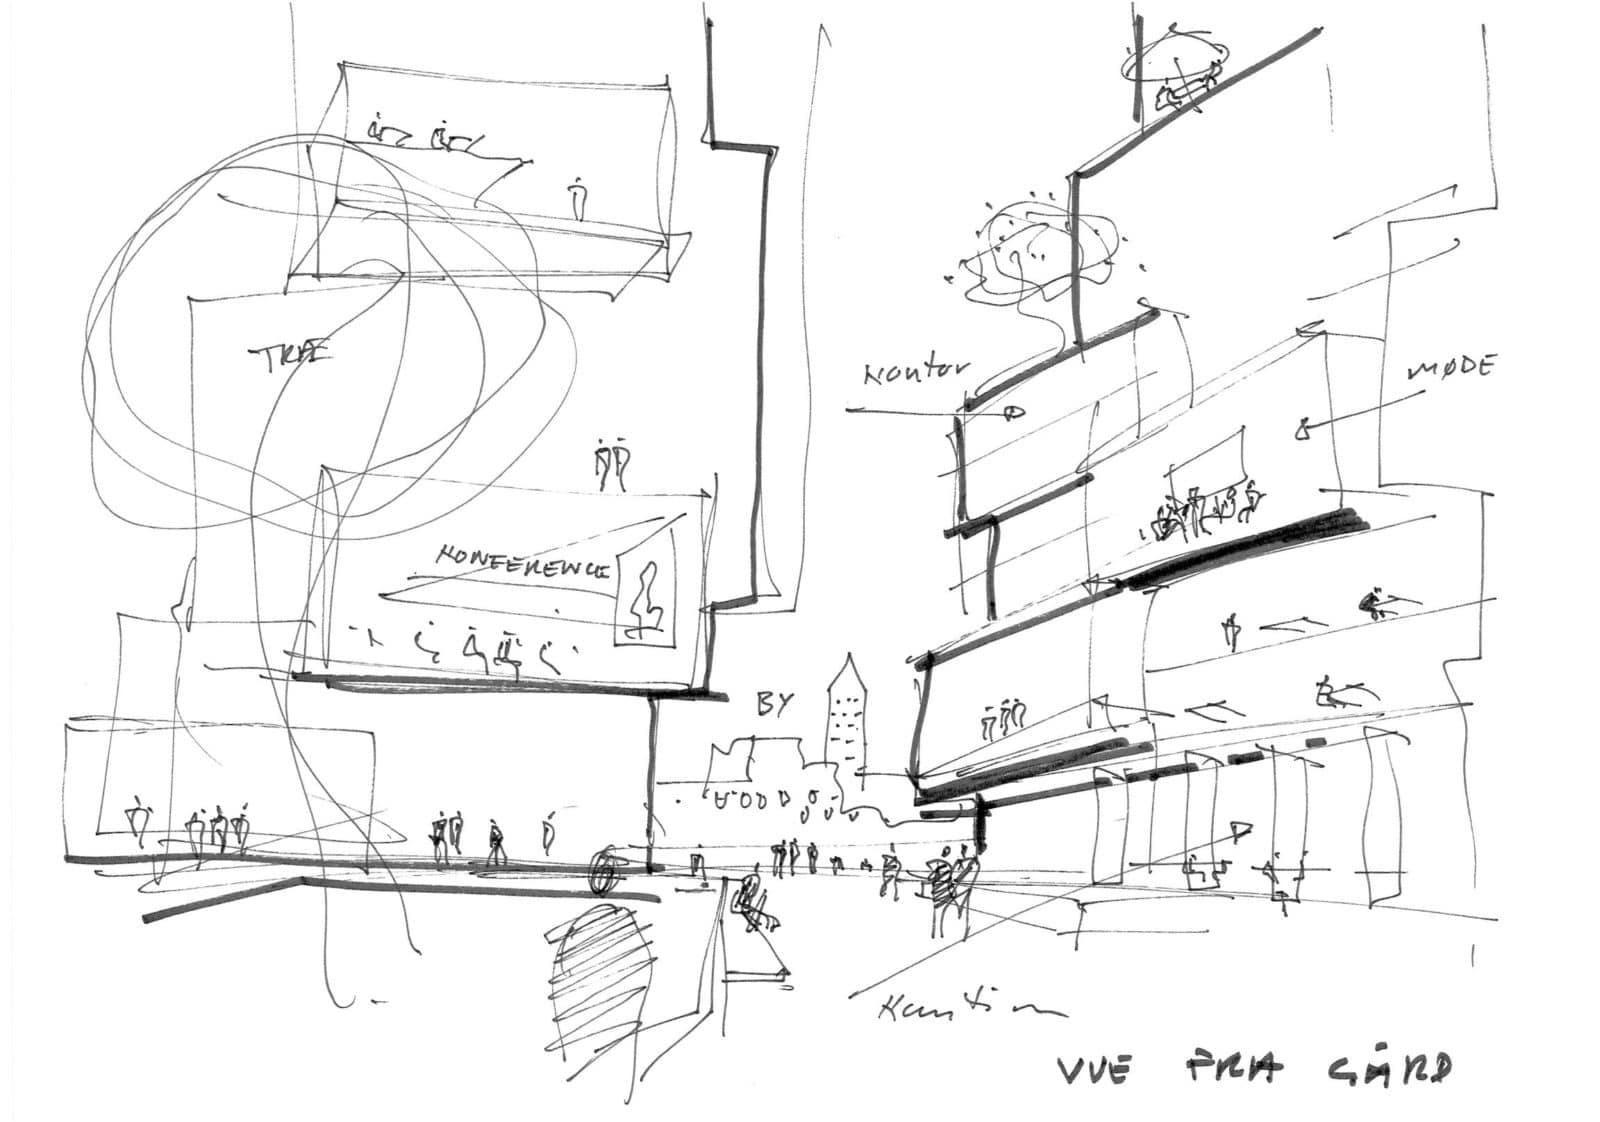 TRÆ
Kontor
MØDE
KONFERENCE
BY
Kantine
VUE FRA GÅRD